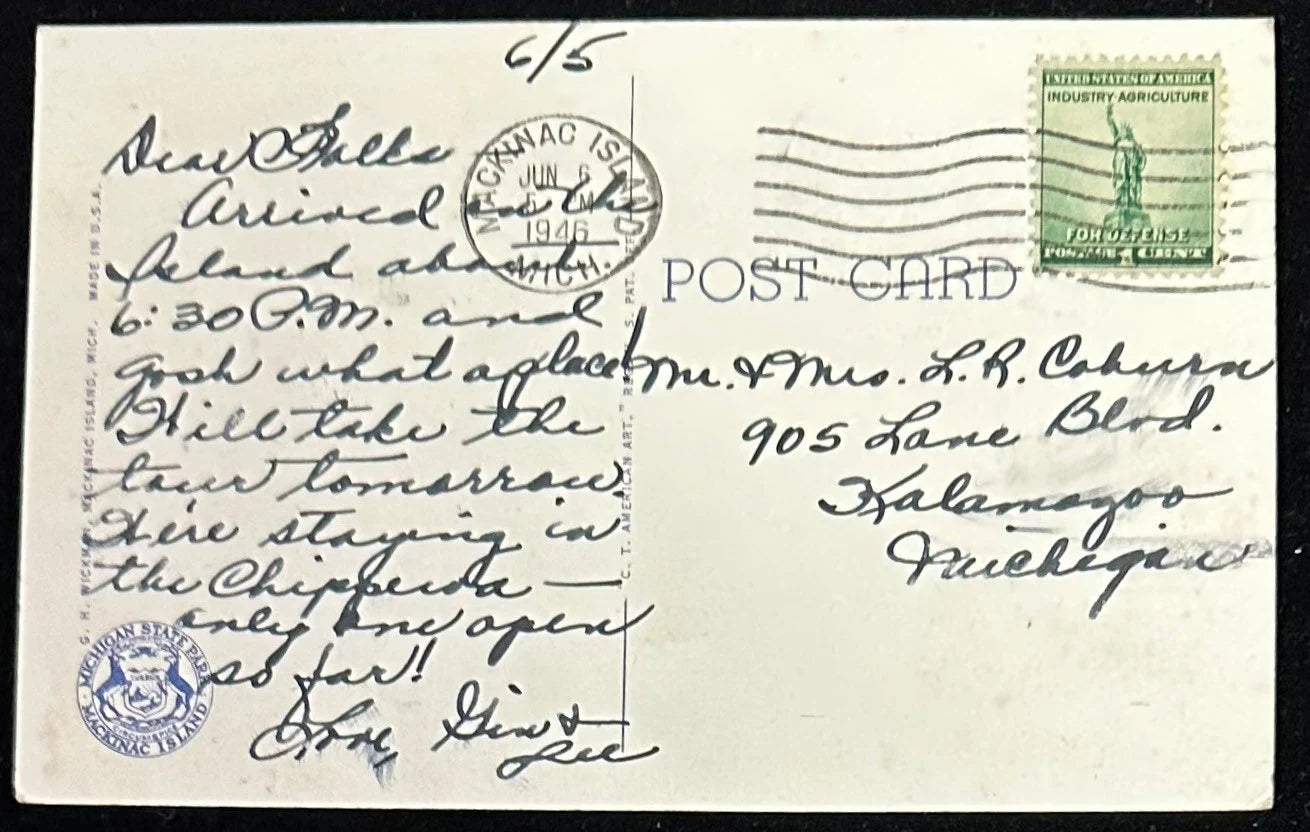 6/5
Dear Folks
Arrived on the
Island about
6:30 P.M. and
gosh what a place!
We'll take the
tour tomorrow.
We're staying in
the Chippewa —
only one open
so far!!
Love, Gin &
Lee
MACKINAC ISLAND
JUN 6
M
1946
MICH.
UNITED STATES OF AMERICA
INDUSTRY·AGRICULTURE
FOR DEFENSE
POSTAGE 1 CENT
POST CARD
Mr. & Mrs. L. R. Coburn
905 Lane Blvd.
Kalamazoo
Michigan
G. H. WICKMAN, MACKINAC ISLAND, MICH. MADE IN U.S.A.
C. T. AMERICAN ART," S. PAT.
MICHIGAN STATE PARK
MACKINAC ISLAND
CIRCUMSPICE